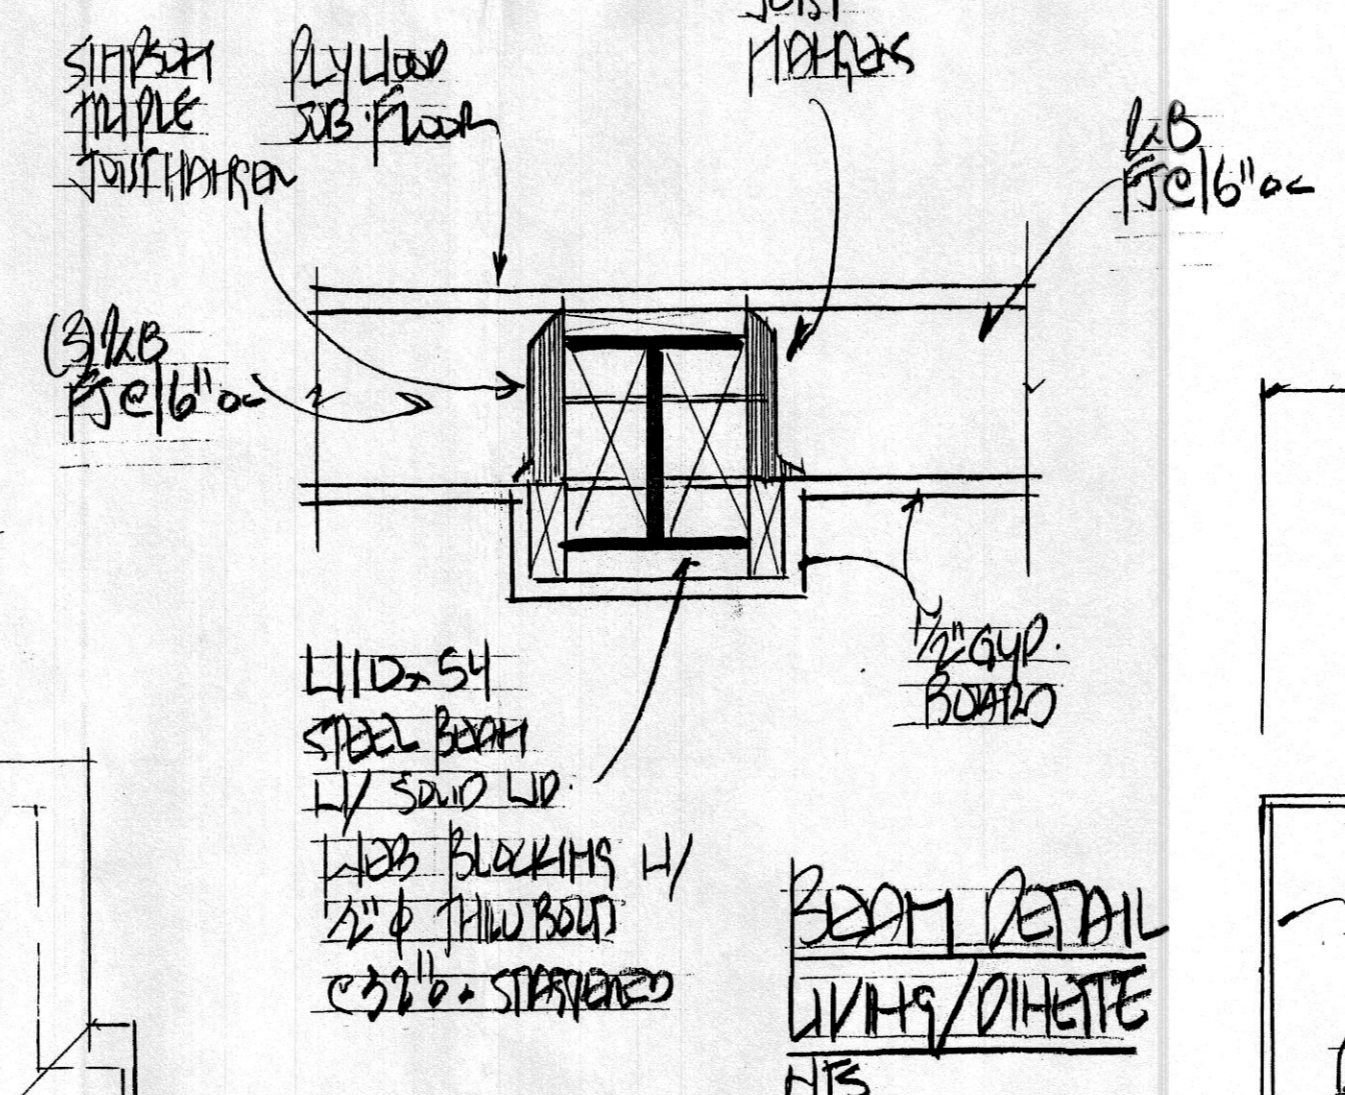 SIMPSON
TRIPLE
JOIST HANGER
PLYWOOD
SUB·FLOOR
JOIST
HANGERS
2x8
FJ @ 16" oc
(3) 2x8
FJ @ 16" oc
1/2" GYP.
BOARD
W10x54
STEEL BEAM
W/ SOLID WD.
WEB BLOCKING W/
1/2" φ THRU BOLTS
@ 32" o. STAGGERED
BEAM DETAIL
LIVING/DINETTE
NTS